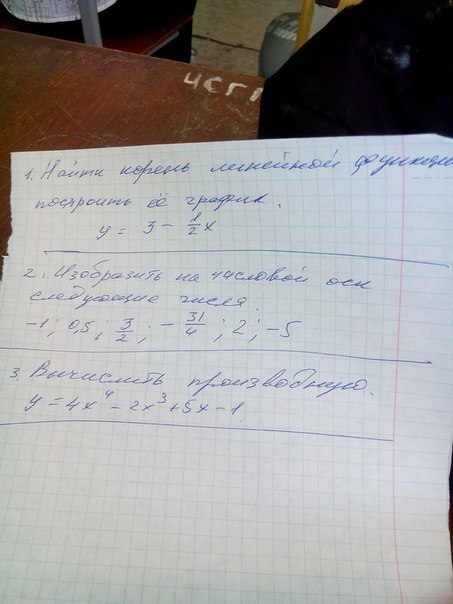 ЧСГП
1. Найти корень линейной функции
построить её график.
y = 3 - 1/2 x
2. Изобразить на числовой оси
следующие числа
-1; 0,5; 3/2; -31/4; 2; -5
3. Вычислить производную.
y = 4x⁴ - 2x³ + 5x - 1